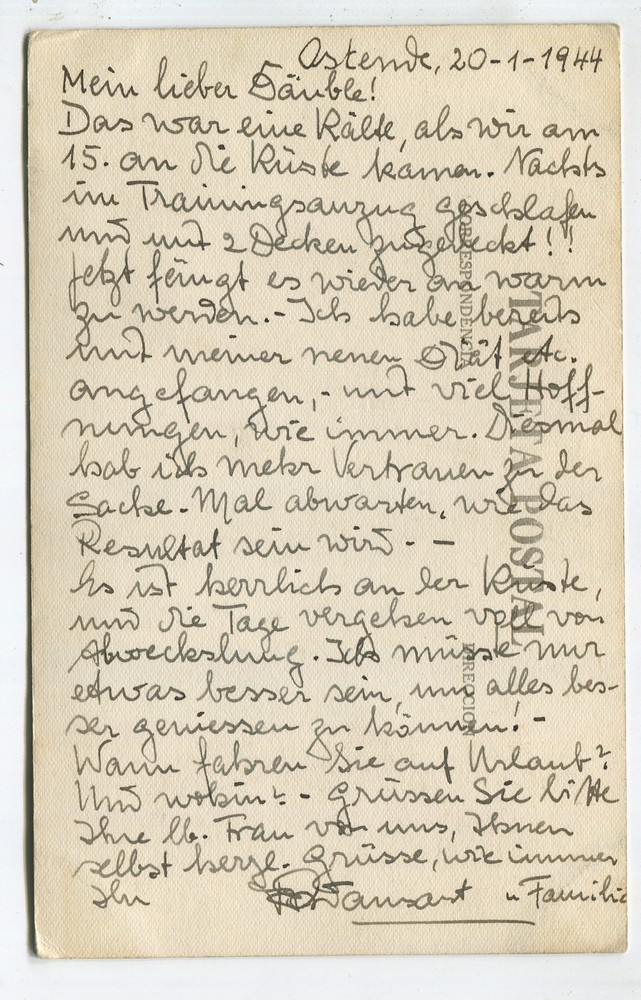 Ostende, 20-1-1944
Mein lieber Däuble!
Das war eine Kälte, als wir am
15. an die Küste kamen. Nachts
im Trainingsanzug geschlafen
und mit 2 Decken zugedeckt!!
Jetzt fängt es wieder an warm
zu werden. - Ich habe bereits
mit meiner neuen Diät etc.
angefangen, - mit viel Hoff-
nungen, wie immer. Diesmal
hab ich mehr Vertrauen zu der
Sache. Mal abwarten, wie das
Resultat sein wird. -
Es ist herrlich an der Küste,
und die Tage vergehen voll von
Abwechslung. Ich müsste nur
etwas besser sein, um alles bes-
ser geniessen zu können! -
Wann fahren Sie auf Urlaub?
Und wohin? - Grüssen Sie bitte
Ihre lb. Frau von uns, Ihnen
selbst herzl. Grüsse, wie immer
Ihr u Familie
TARJETA POSTAL
CORRESPONDENCIA
DIRECCION